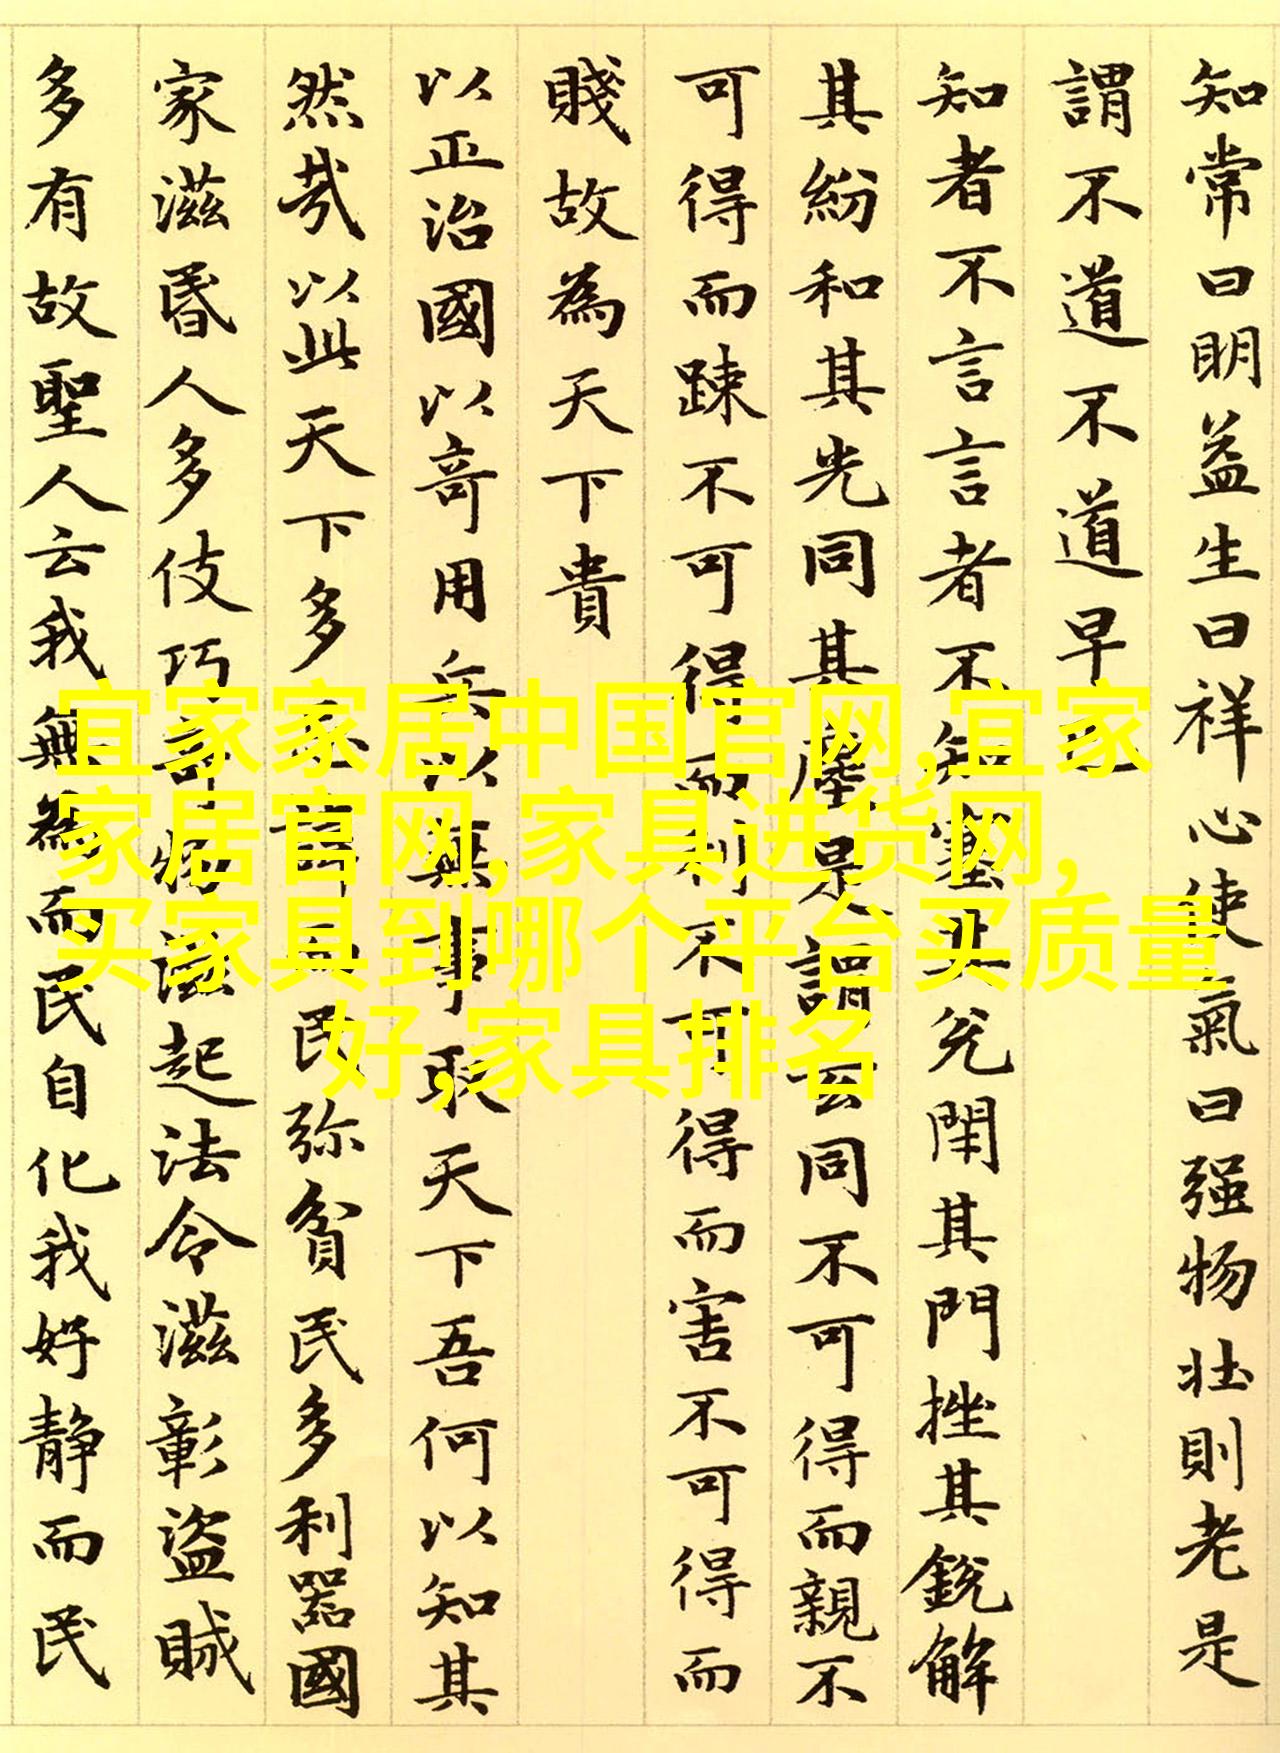 知常曰明益生曰祥心使氣曰强物壯則老是
謂不道不道早已
知者不言言者不知塞其兌閇其門挫其銳解
其紛和其光同其塵是謂玄同不可得而親不
可得而踈不可得而利不可得而害不可得而
賤故為天下貴
以正治國以竒用兵以無事取天下吾何以知其
然哉以此天下多忌諱而民弥貧民多利器國
家滋昬人多伎巧竒物滋起法令滋彰盜賊
多有故聖人云我無為而民自化我好静而民
宜家家居中国官网,宜家
家居官网,家具进货网,
买家具到哪个平台买质量
好,家具排名